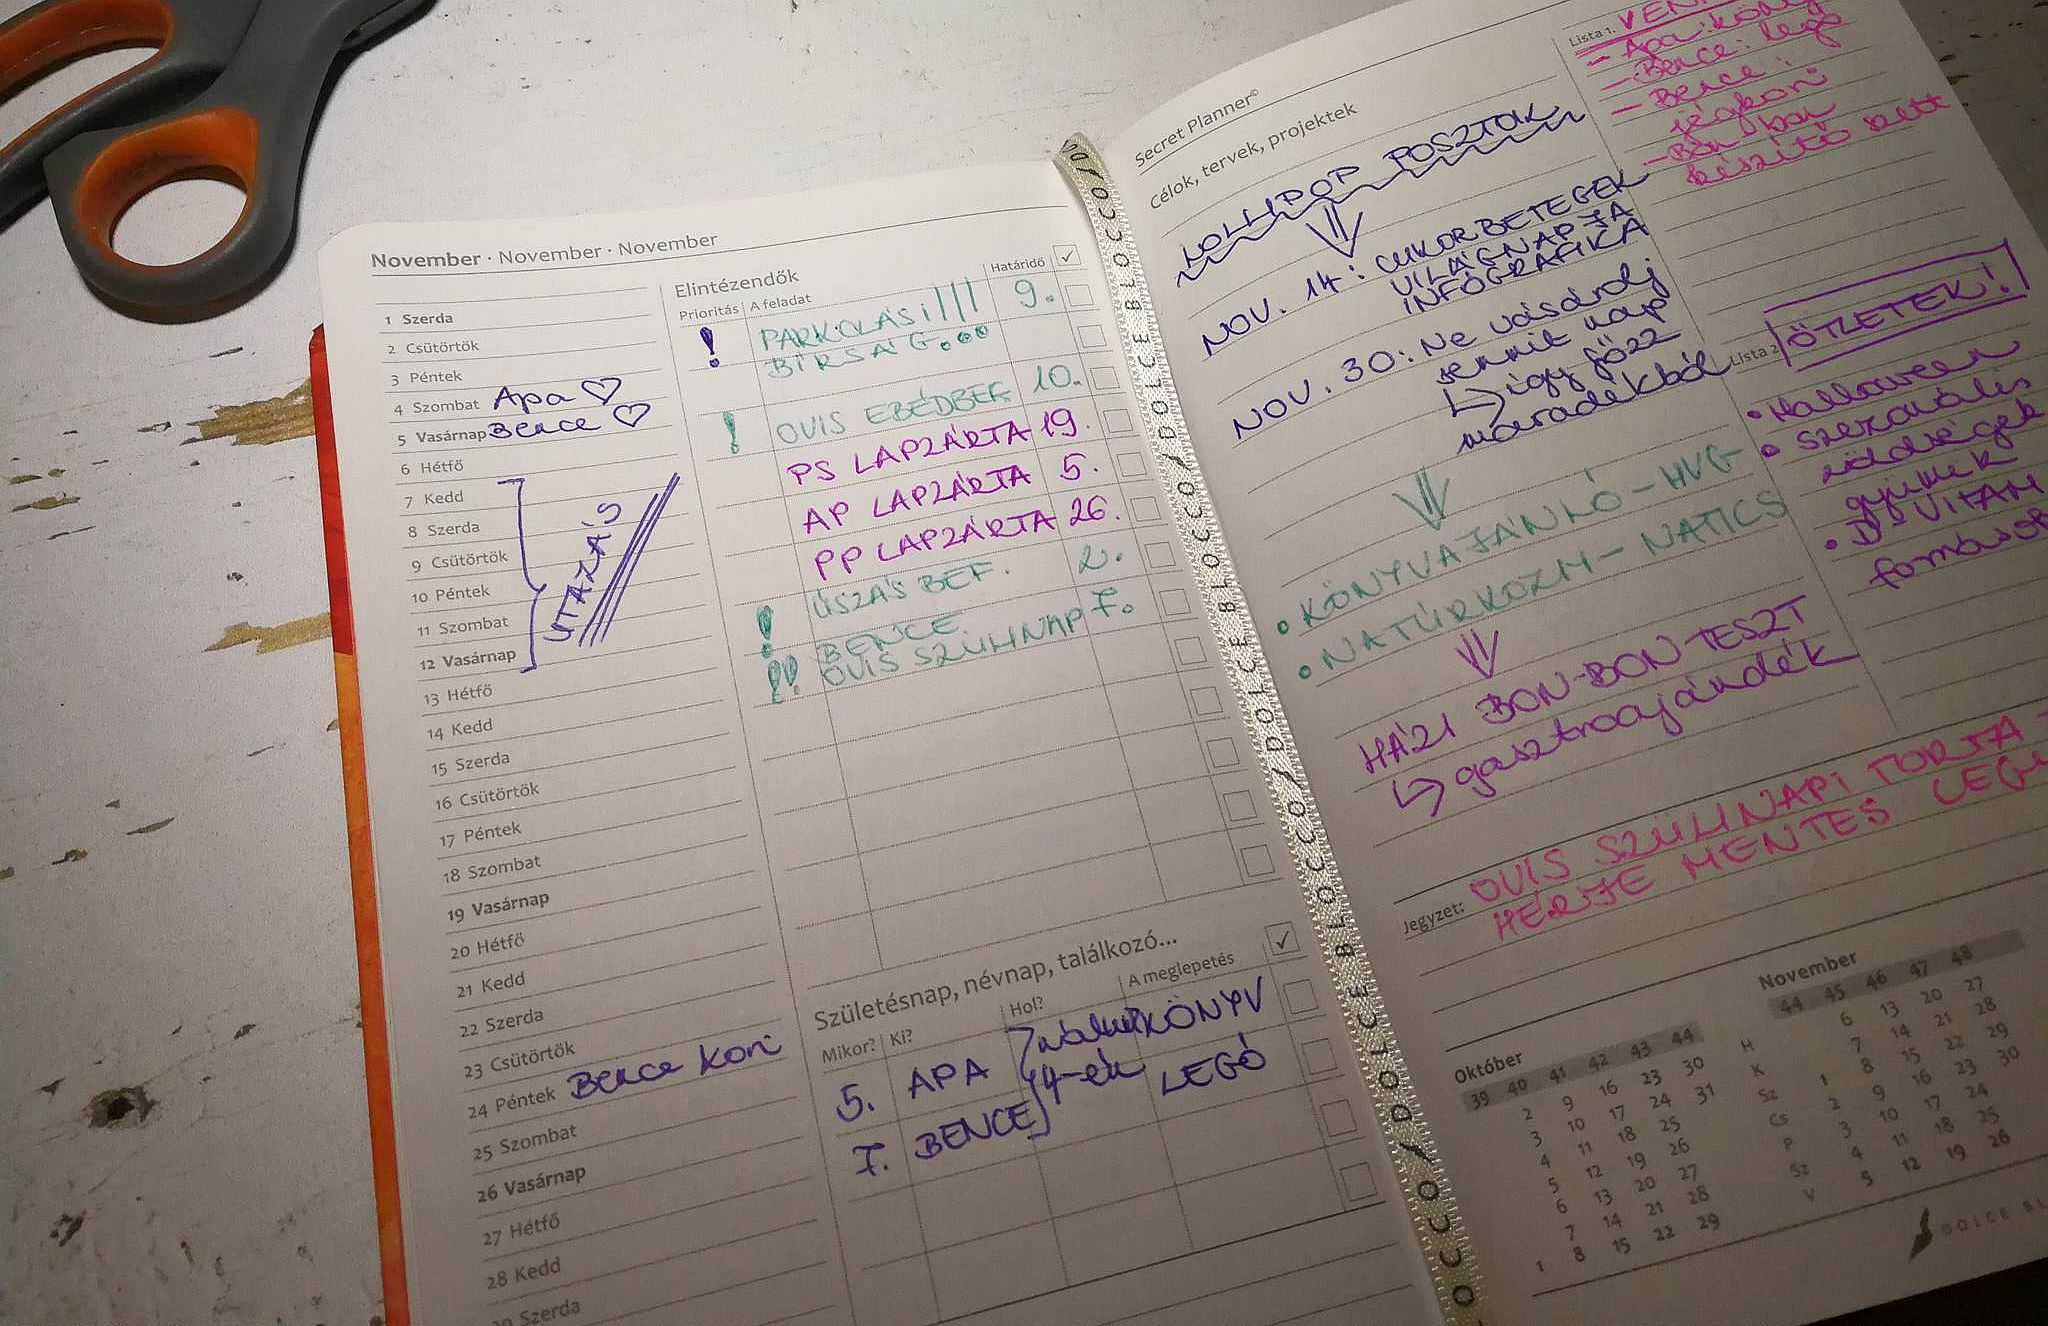 November · November · November
1 Szerda
2 Csütörtök
3 Péntek
4 Szombat Apa ♡
5 Vasárnap Bence ♡
6 Hétfő
7 Kedd
8 Szerda
9 Csütörtök
10 Péntek
11 Szombat
12 Vasárnap
UTAZÁS
13 Hétfő
14 Kedd
15 Szerda
16 Csütörtök
17 Péntek
18 Szombat
19 Vasárnap
20 Hétfő
21 Kedd
22 Szerda
23 Csütörtök
24 Péntek Bence kori
25 Szombat
26 Vasárnap
27 Hétfő
28 Kedd
Szerda
Elintézendők
Prioritás A feladat Határidő ✓
! PARKOLÁSI 9.
BÍRSÁG...
! OVIS EBÉDBEF. 10.
PS LAPZÁRTA 19.
AP LAPZÁRTA 5.
PP LAPZÁRTA 26.
! ÚSZÁS BEF. 2.
!! BENCE
OVIS SZÜLINAP 7.
Születésnap, névnap, találkozó... ✓
Mikor? Ki? Hol? A meglepetés
5. APA nálunk KÖNYV
7. BENCE 4-én LEGÓ
DOLCE BLOCCO/DOLCE BLOCCO/DOLCE BLOCCO/DOLCE BLOCCO
Secret Planner©
célok, tervek, projektek
LOLLIPOP POSZTOK
⇓
NOV. 14: CUKORBETEGEK
VILÁGNAPJA
INFOGRAFIKA
NOV. 30: Ne vásárolj
semmit nap
↳ így főzz
maradékból
⇓
• KÖNYVAJÁNLÓ - HVG
• NATÚRKOZM - NATICS
⇓
HÁZI BON-BON TESZT
↳ gasztroajándék
Lista 1.
- Apa: könyv
- Bence: legó
- Bence:
jégkori
- Bon bon
készítő szett
Lista 2. ÖTLETEK!
• Halloween
• szezonális
zöldségek
gyümik
• D-VITAM
Jegyzet: OVIS SZÜLINAPI TORTA
HÉJE MENTES LEGY
Október
39 40 41 42 43 44
2 9 16 23 30
3 10 17 24 31
4 11 18 25
5 12 19 26
6 13 20 27
7 14 21 28
1 8 15 22 29
H
K
Sz
Cs
P
Sz
V
November
44 45 46 47 48
6 13 20 27
7 14 21 28
1 8 15 22 29
2 9 16 23 30
3 10 17 24
4 11 18 25
5 12 19 26
DOLCE BL